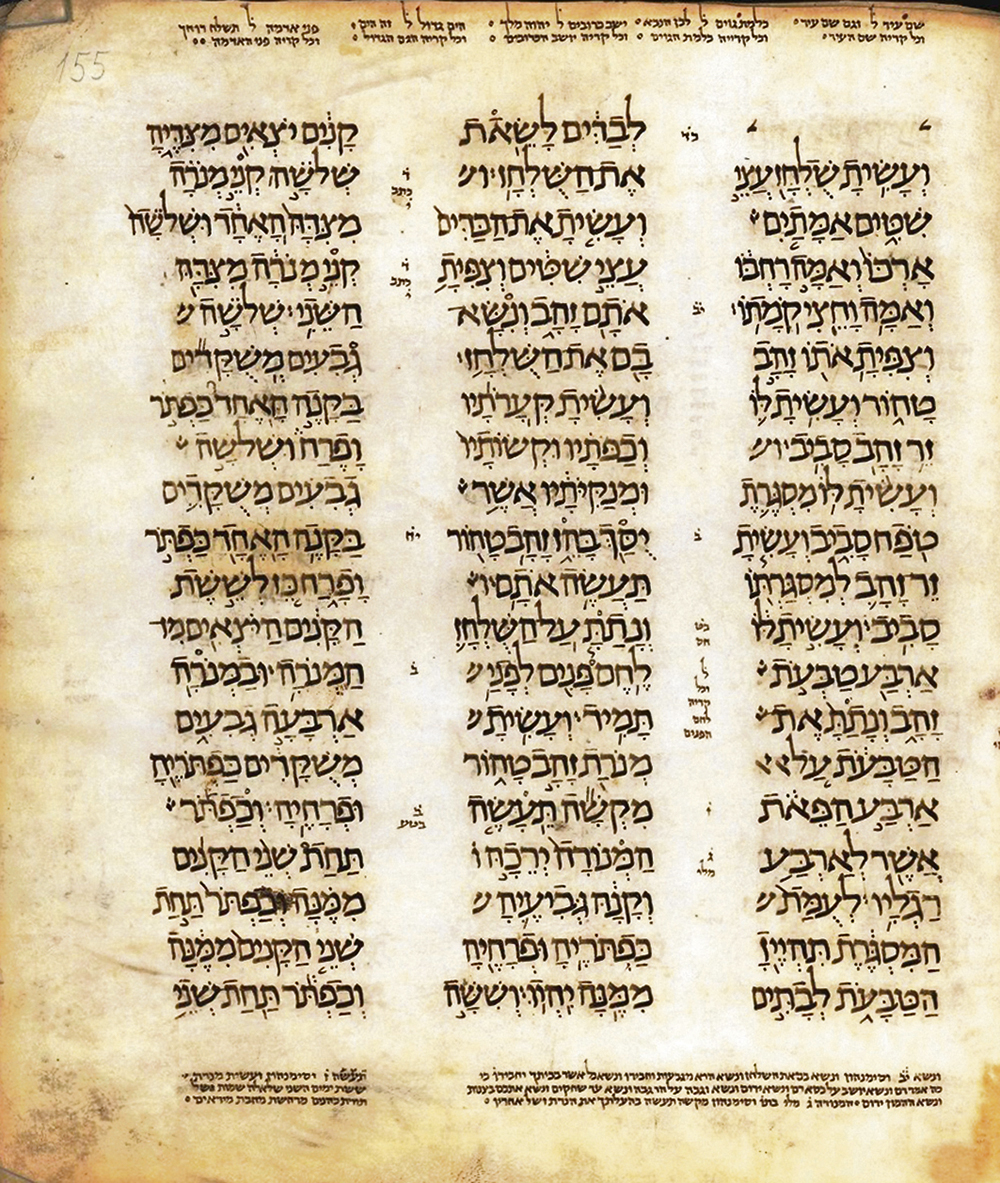 שם עיר ל וגם שם עיר כלמת גוים ל לכן הנבא ישב כרובים ל יהוה מלך הים גדול ל זה הים פני אדמה ל תשלח רוחך
וכל קריה שם העיר וכל קרייה כלמת הגוים וכל קריה יושב הכרובים וכל קריה הים הגדול וכל קריה פני האדמה
155
וְעָשִׂיתָ שֻׁלְחָן עֲצֵי
שִׁטִּים אַמָּתַיִם
אָרְכּוֹ וְאַמָּה רָחְבּוֹ
וְאַמָּה וָחֵצִי קֹמָתוֹ
וְצִפִּיתָ אֹתוֹ זָהָב
טָהוֹר וְעָשִׂיתָ לּוֹ
זֵר זָהָב סָבִיב
וְעָשִׂיתָ לּוֹ מִסְגֶּרֶת
טֹפַח סָבִיב וְעָשִׂיתָ
זֵר זָהָב לְמִסְגַּרְתּוֹ
סָבִיב וְעָשִׂיתָ לּוֹ
אַרְבַּע טַבְּעֹת
זָהָב וְנָתַתָּ אֶת
הַטַּבָּעֹת עַל
אַרְבַּע הַפֵּאֹת
אֲשֶׁר לְאַרְבַּע
רַגְלָיו לְעֻמַּת
הַמִּסְגֶּרֶת תִּהְיֶיןָ
הַטַּבָּעֹת לְבָתִּים
לְבַדִּים לָשֵׂאת
אֶת הַשֻּׁלְחָן
וְעָשִׂיתָ אֶת הַבַּדִּים
עֲצֵי שִׁטִּים וְצִפִּיתָ
אֹתָם זָהָב וְנִשָּׂא
בָם אֶת הַשֻּׁלְחָן
וְעָשִׂיתָ קְּעָרֹתָיו
וְכַפֹּתָיו וּקְשׂוֹתָיו
וּמְנַקִּיֹּתָיו אֲשֶׁר
יֻסַּךְ בָּהֵן זָהָב טָהוֹר
תַּעֲשֶׂה אֹתָם
וְנָתַתָּ עַל הַשֻּׁלְחָן
לֶחֶם פָּנִים לְפָנַי
תָּמִיד וְעָשִׂיתָ
מְנֹרַת זָהָב טָהוֹר
מִקְשָׁה תֵּעָשֶׂה
הַמְּנוֹרָה יְרֵכָהּ
וְקָנָהּ גְּבִיעֶיהָ
כַּפְתֹּרֶיהָ וּפְרָחֶיהָ
מִמֶּנָּה יִהְיוּ וְשִׁשָּׁה
קָנִים יֹצְאִים מִצִּדֶּיהָ
שְׁלֹשָׁה קְנֵי מְנֹרָה
מִצִּדָּהּ הָאֶחָד וּשְׁלֹשָׁה
קְנֵי מְנֹרָה מִצִּדָּהּ
הַשֵּׁנִי שְׁלֹשָׁה
גְבִעִים מְשֻׁקָּדִים
בַּקָּנֶה הָאֶחָד כַּפְתֹּר
וָפֶרַח וּשְׁלֹשָׁה
גְבִעִים מְשֻׁקָּדִים
בַּקָּנֶה הָאֶחָד כַּפְתֹּר
וָפָרַח כֵּן לְשֵׁשֶׁת
הַקָּנִים הַיֹּצְאִים מִן
הַמְּנֹרָה וּבַמְּנֹרָה
אַרְבָּעָה גְבִעִים
מְשֻׁקָּדִים כַּפְתֹּרֶיהָ
וּפְרָחֶיהָ וְכַפְתֹּר
תַּחַת שְׁנֵי הַקָּנִים
מִמֶּנָּה וְכַפְתֹּר תַּחַת
שְׁנֵי הַקָּנִים מִמֶּנָּה
וְכַפְתֹּר תַּחַת שְׁנֵי